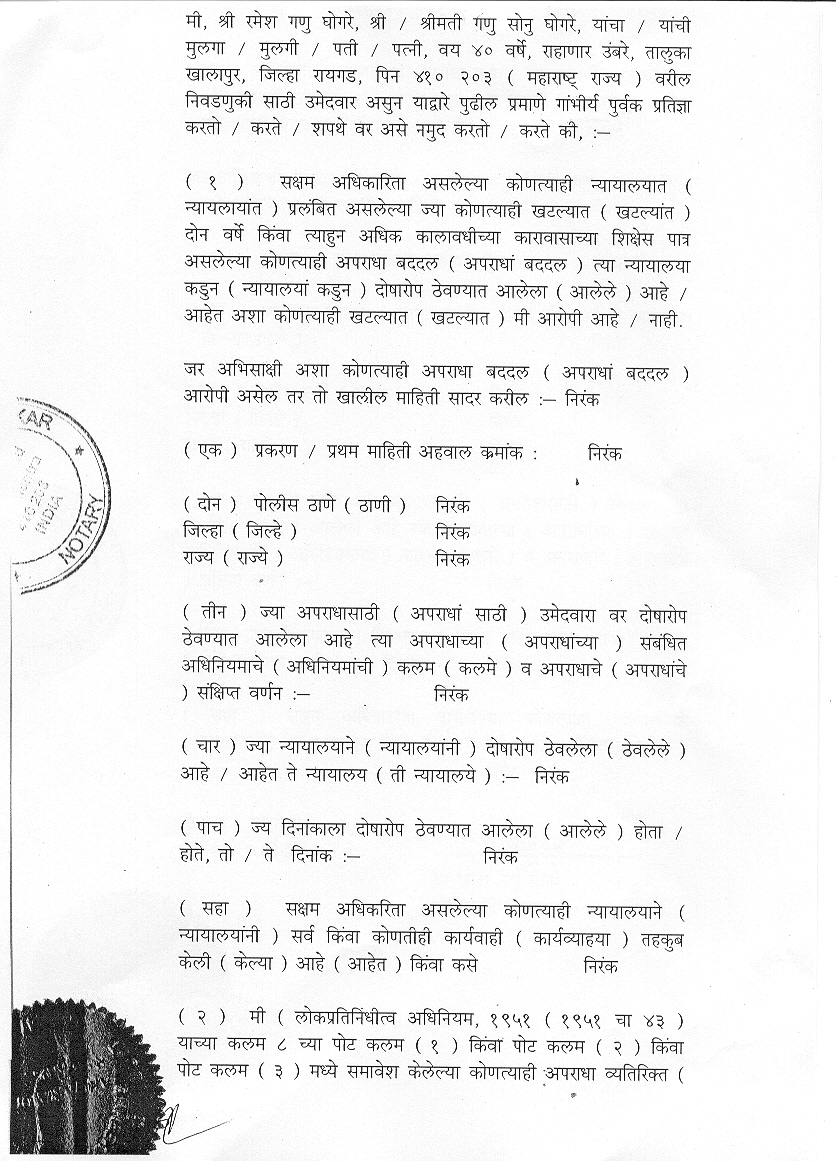 मी, श्री रमेश गणु घोगरे, श्री / श्रीमती गणु सोनु घोगरे, यांचा / यांची
मुलगा / मुलगी / पती / पत्नी, वय ४० वर्षे, राहाणार उंबरे, तालुका
खालापुर, जिल्हा रायगड, पिन ४१० २०३ ( महाराष्ट्र राज्य ) वरील
निवडणुकी साठी उमेदवार असुन याद्वारे पुढील प्रमाणे गांभीर्य पुर्वक प्रतिज्ञा
करतो / करते / शपथे वर असे नमुद करतो / करते की, :–
( १ ) सक्षम अधिकारिता असलेल्या कोणत्याही न्यायालयात (
न्यायलायांत ) प्रलंबित असलेल्या ज्या कोणत्याही खटल्यात ( खटल्यांत )
दोन वर्षे किंवा त्याहुन अधिक कालावधीच्या कारावासाच्या शिक्षेस पात्र
असलेल्या कोणत्याही अपराधा बददल ( अपराधां बददल ) त्या न्यायालया
कडुन ( न्यायालयां कडुन ) दोषारोप ठेवण्यात आलेला ( आलेले ) आहे /
आहेत अशा कोणत्याही खटल्यात ( खटल्यात ) मी आरोपी आहे / नाही.
जर अभिसाक्षी अशा कोणत्याही अपराधा बददल ( अपराधां बददल )
आरोपी असेल तर तो खालील माहिती सादर करील :– निरंक
( एक ) प्रकरण / प्रथम माहिती अहवाल क्रमांक : निरंक
( दोन ) पोलीस ठाणे ( ठाणी ) निरंक
जिल्हा ( जिल्हे ) निरंक
राज्य ( राज्ये ) निरंक
( तीन ) ज्या अपराधासाठी ( अपराधां साठी ) उमेदवारा वर दोषारोप
ठेवण्यात आलेला आहे त्या अपराधाच्या ( अपराधांच्या ) संबंधित
अधिनियमाचे ( अधिनियमांची ) कलम ( कलमे ) व अपराधाचे ( अपराधांचे
) संक्षिप्त वर्णन :– निरंक
( चार ) ज्या न्यायालयाने ( न्यायालयांनी ) दोषारोप ठेवलेला ( ठेवलेले )
आहे / आहेत ते न्यायालय ( ती न्यायालये ) :– निरंक
( पाच ) ज्य दिनांकाला दोषारोप ठेवण्यात आलेला ( आलेले ) होता /
होते, तो / ते दिनांक :– निरंक
( सहा ) सक्षम अधिकरिता असलेल्या कोणत्याही न्यायालयाने (
न्यायालयांनी ) सर्व किंवा कोणतीही कार्यवाही ( कार्यव्याहया ) तहकुब
केली ( केल्या ) आहे ( आहेत ) किंवा कसे निरंक
( २ ) मी ( लोकप्रतिनिंधीत्व अधिनियम, १९५१ ( १९५१ चा ४३ )
याच्या कलम ८ च्या पोट कलम ( १ ) किंवा पोट कलम ( २ ) किंवा
पोट कलम ( ३ ) मध्ये समावेश केलेल्या कोणत्याही अपराधा व्यतिरिक्त (
KAR
INDIA
NOTARY